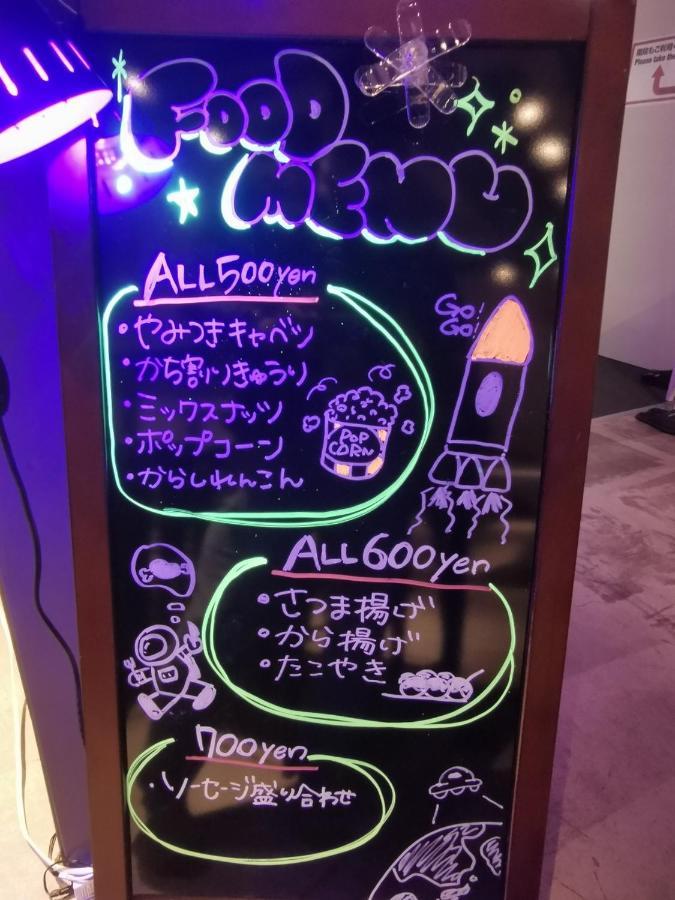 FOOD
MENU
ALL500yen
・やみつきキャベツ
・かち割りきゅうり
・ミックスナッツ
・ポップコーン
・からしれんこん
POP
CORN
GO!
GO!
ALL600yen
・さつま揚げ
・から揚げ
・たこやき
700yen
・ソーセージ盛り合わせ